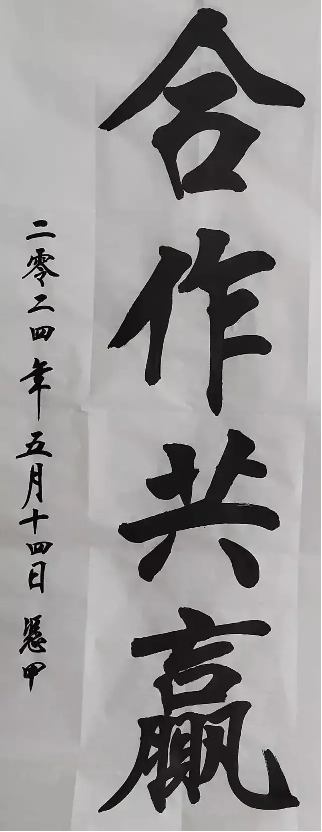 合作共赢
二零二四年五月十四日 甲